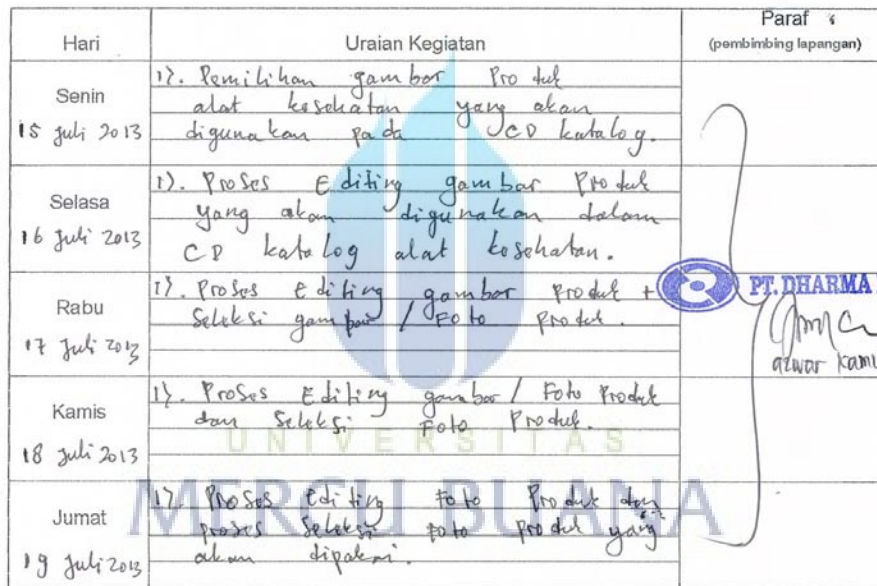 Hari Uraian Kegiatan Paraf
(pembimbing lapangan)
Senin
15 Juli 2013
1). Pemilihan gambar Produk
alat kesehatan yang akan
digunakan pada CD katalog.
Selasa
16 Juli 2013
1). Proses Editing gambar Produk
yang akan digunakan dalam
CD katalog alat kesehatan.
Rabu
17 Juli 2013
1). Proses editing gambar produk +
Seleksi gambar / Foto produk.
PT. DHARMA
azwar kamil
Kamis
18 Juli 2013
1). Proses Editing gambar / Foto Produk
dan Seleksi Foto Produk.
UNIVERSITAS
MERCU BUANA
Jumat
19 Juli 2013
1). Proses Editing Foto Produk dan
proses Seleksi Foto produk yang
akan dipakai.